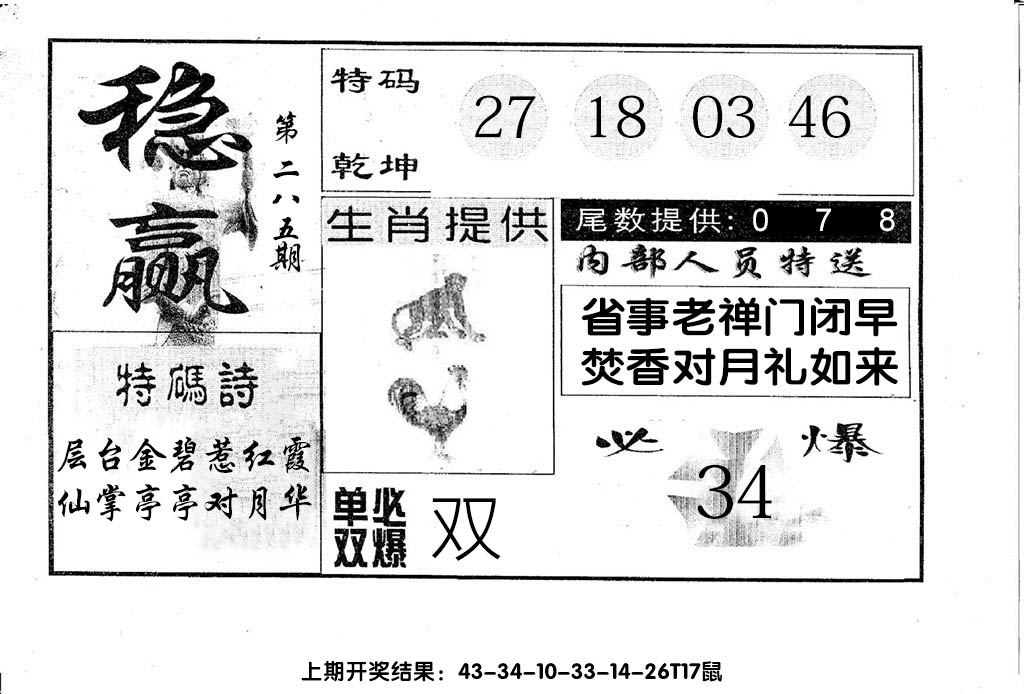 稳赢
第二八五期
特码
乾坤
27 18 03 46
生肖提供
尾数提供: 0 7 8
内部人员特送
省事老禅门闭早
焚香对月礼如来
特碼詩
层台金碧惹红霞
仙掌亭亭对月华
单双
必爆
双
必爆
34
上期开奖结果：43-34-10-33-14-26T17鼠